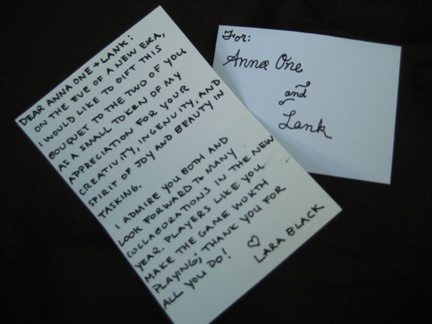 DEAR ANNA ONE + LANK:
ON THE EVE OF A NEW ERA,
I WOULD LIKE TO GIFT THIS
BOUQUET TO THE TWO OF YOU
AS A SMALL TOKEN OF MY
APPRECIATION FOR YOUR
CREATIVITY, INGENUITY, AND
SPIRIT OF JOY AND BEAUTY IN
TASKING.
I ADMIRE YOU BOTH AND
LOOK FORWARD TO MANY
COLLABORATIONS IN THE NEW
YEAR. PLAYERS LIKE YOU
MAKE THE GAME WORTH
PLAYING; THANK YOU FOR
ALL YOU DO!
♡
LARA BLACK
For:
Anna One
and
Lank